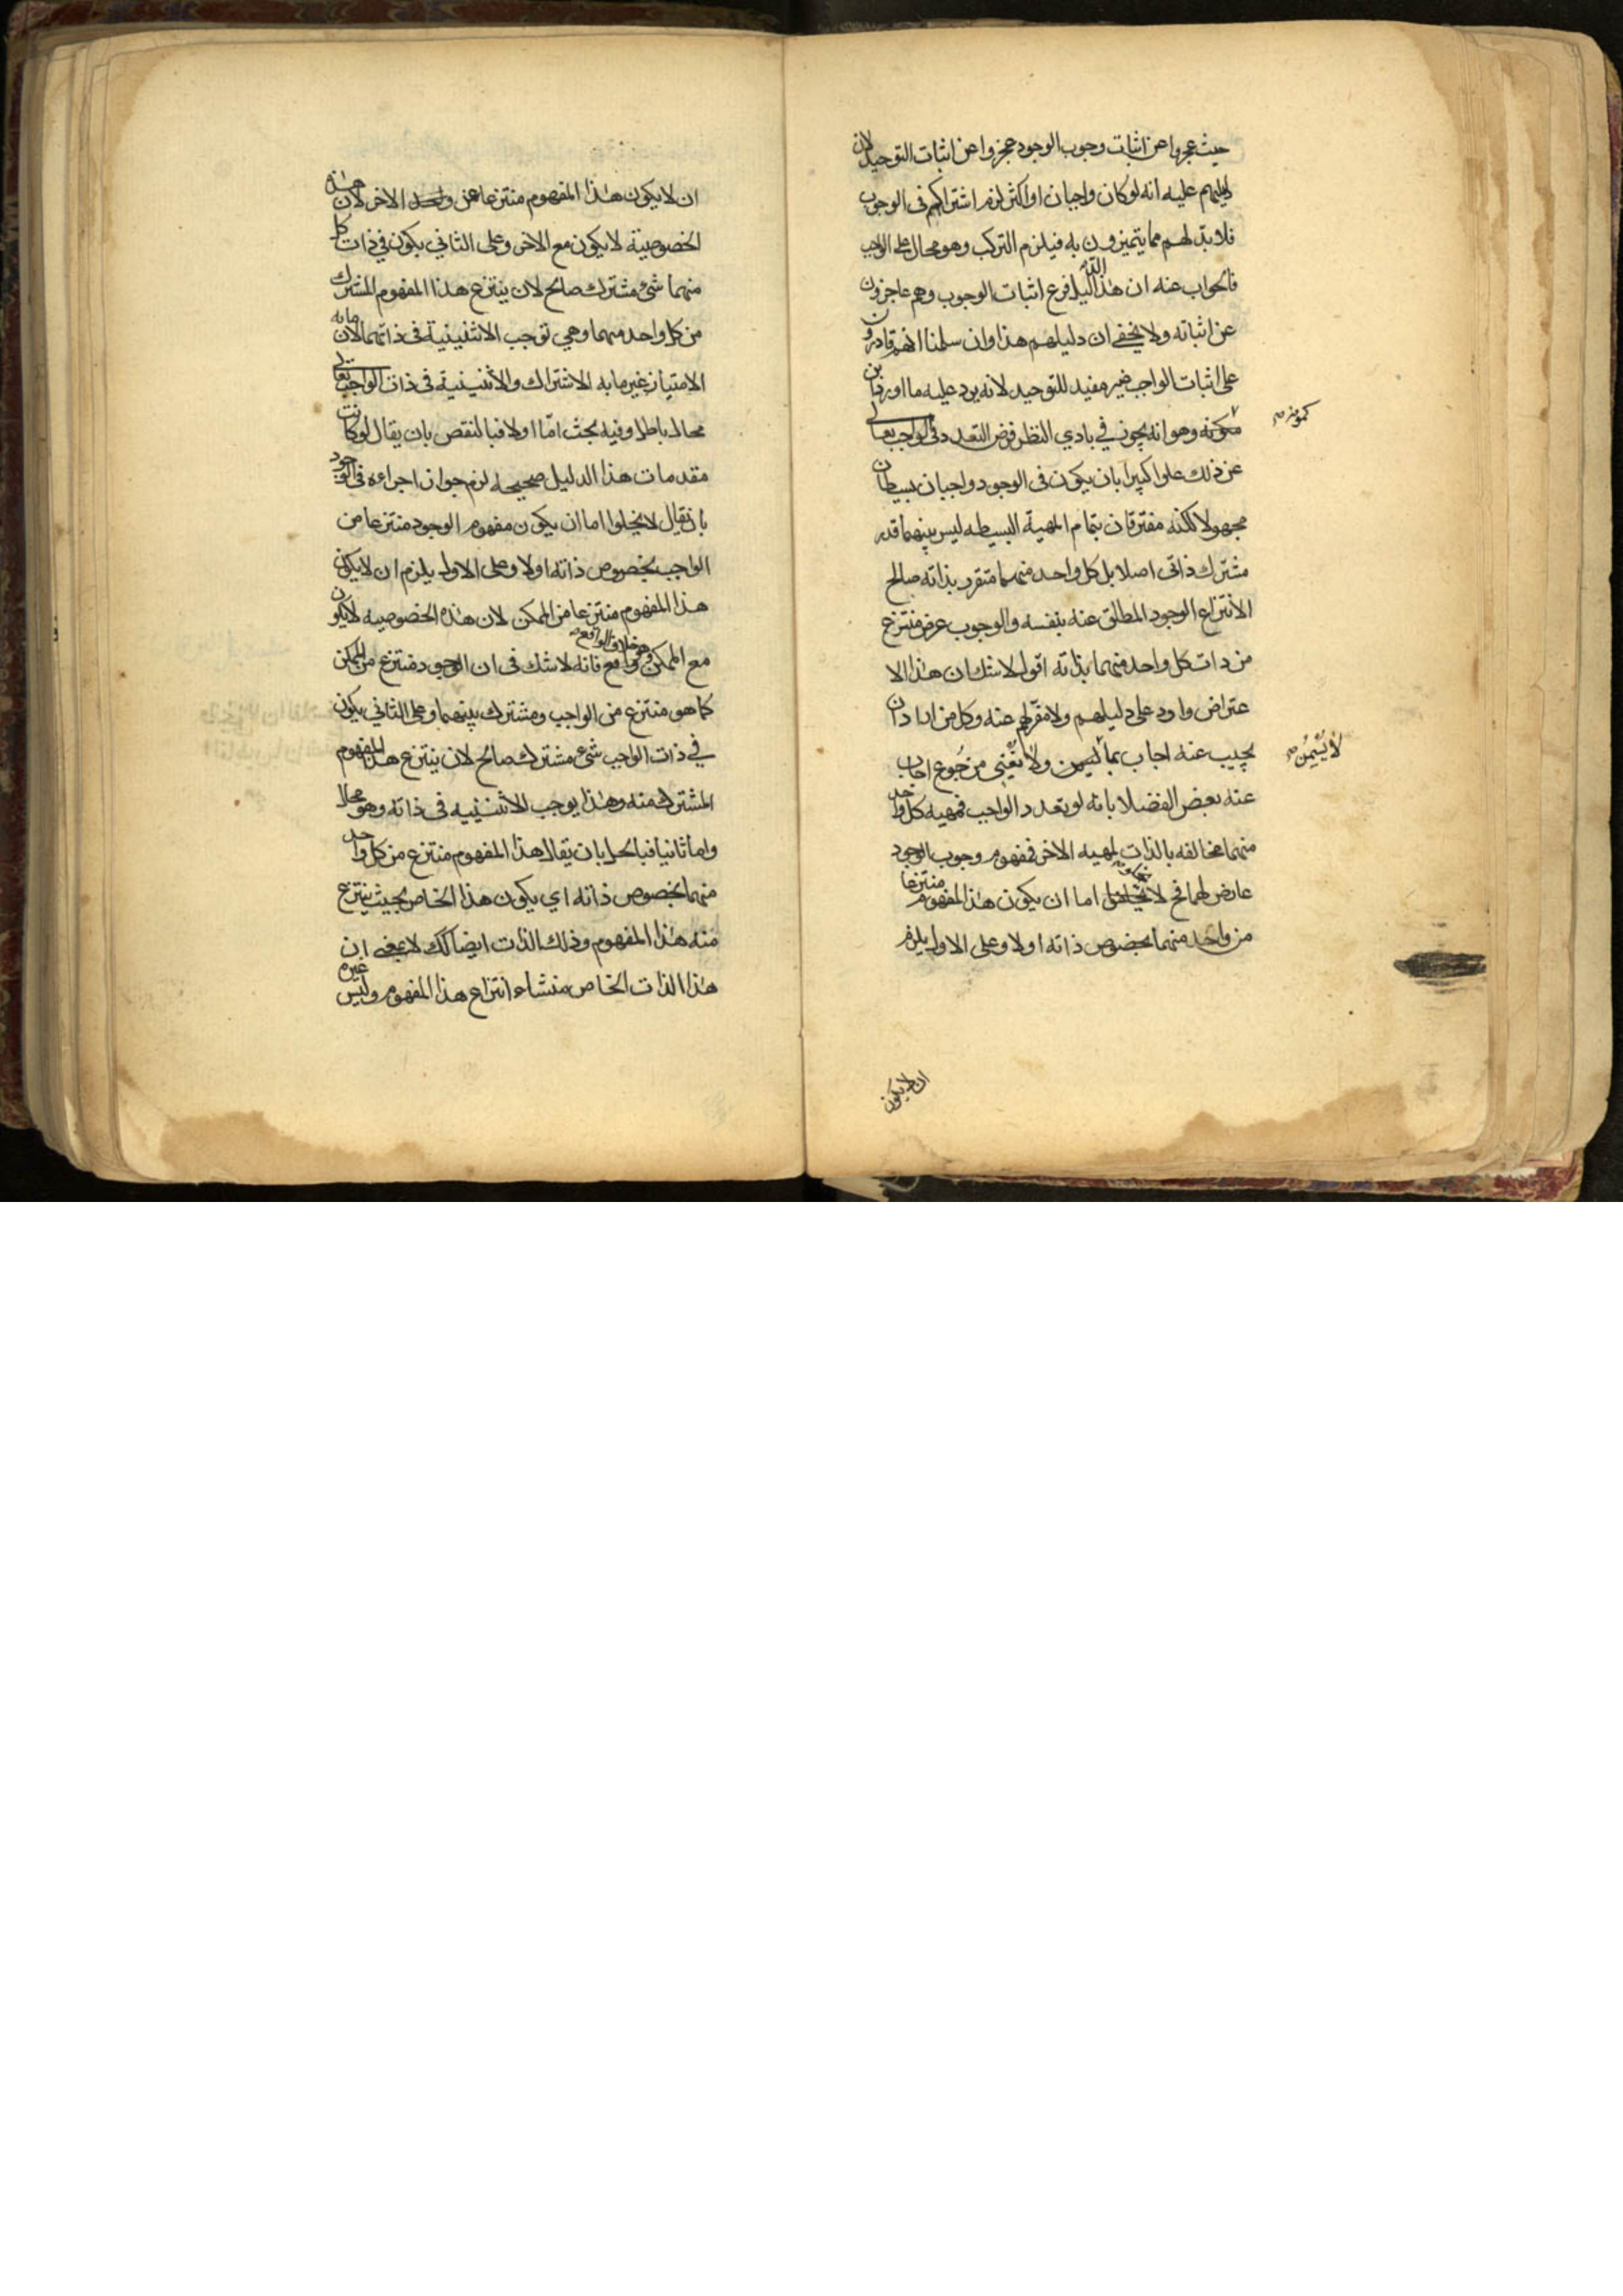 حيث عجزوا عن اثبات وجوب الوجود عجزوا عن اثبات التوحيد لان
دليلهم عليه انه لو كان واجبان او اكثر لزم اشتراكهم فى الوجوب
فلا بد لهم مما يتميزون به فيلزم التركب وهو محال على الواجب
فالجواب عنه ان هذا الدليل فرع اثبات الوجوب وهم عاجزون
عن اثباته ولا يخفى ان دليلهم هذا وان سلمنا انهم قادرون
على اثبات الواجب غير مفيد للتوحيد لانه يرد عليه ما اورد ابن
كمونه وهو انه يجوز في بادي النظر فرض التعدد فى الواجب تعالى
كمونه صح
عن ذلك علوا كبيرا بان يكون فى الوجود واجبان بسيطان
مجهولا لكنه مفترقان بتمام المهية البسيطه ليس بينهما قدر
مشترك ذاتى اصلا بل كل واحد منهما متفرد بذاته صالح
الانتزاع الوجود المطلق عنه بنفسه والوجوب عرض منتزع
من ذات كل واحد منهما بذاته اقول لا شك ان هذا الا
عتراض وارد على دليلهم ولا مفر لهم عنه وكل من اراد ان
يجيب عنه اجاب بما لا يسمن ولا يغني من جوع اجاب
لا يُسْمِنُ صح
عنه بعض الفضلا بانه لو تعدد الواجب فمهيه كل واحد
منهما مخالفه بالذات لمهيه الاخر فمفهوم وجوب الوجود
عارض لهما فح لا يخلو اما ان يكون هذا المفهوم منتزعا
من واحد منهما بخصوص ذاته او لا وعلى الاول يلزم
ان لا يكون
ان لا يكون هذا المفهوم منتزعا عن الاخر لان هذه
الخصوصية لا يكون مع الاخر وعلى الثاني يكون في ذات كل
منهما شئ مشترك صالح لان ينتزع هذا المفهوم المشترك
من كل واحد منهما وهي توجب الاثنينية فى ذاتهما لان ما به
الامتياز غير ما به الاشتراك والاثنينية فى ذات الواجب تعالى
محال باطل وفيه بحث امّا اولا فبالنقص بان يقال لو كانت
مقدمات هذا الدليل صحيحه لزم جواز اجراءه فى الوجود
بان يقال لا يخلوا اما ان يكون مفهوم الوجود منتزعا من
الواجب بخصوص ذاته او لا وعلى الاول يلزم ان لا يكون
هذا المفهوم منتزعا من الممكن لان هذه الخصوصيه لا يكون
مع الممكن وهو خلاف الواقع فانه لا شك فى ان الوجود منتزع من الممكن
كما هو منتزع من الواجب ومشترك بينهما وعلى الثاني يكون
في ذات الواجب شئ مشترك صالح لان ينتزع هذا المفهوم
المشترك منه وهذا يوجب الاثنينيه فى ذاته وهو محال
واما ثانيا فبالحل بان يقال هذا المفهوم منتزع من كل واحد
منهما بخصوص ذاته اي يكون هذا الخاص بحيث ينتزع
منه هذا المفهوم وذلك الذات ايضا كك لا بمعنى ان
هذا الذات الخاص منشاء انتزاع هذا المفهوم وليس غيره